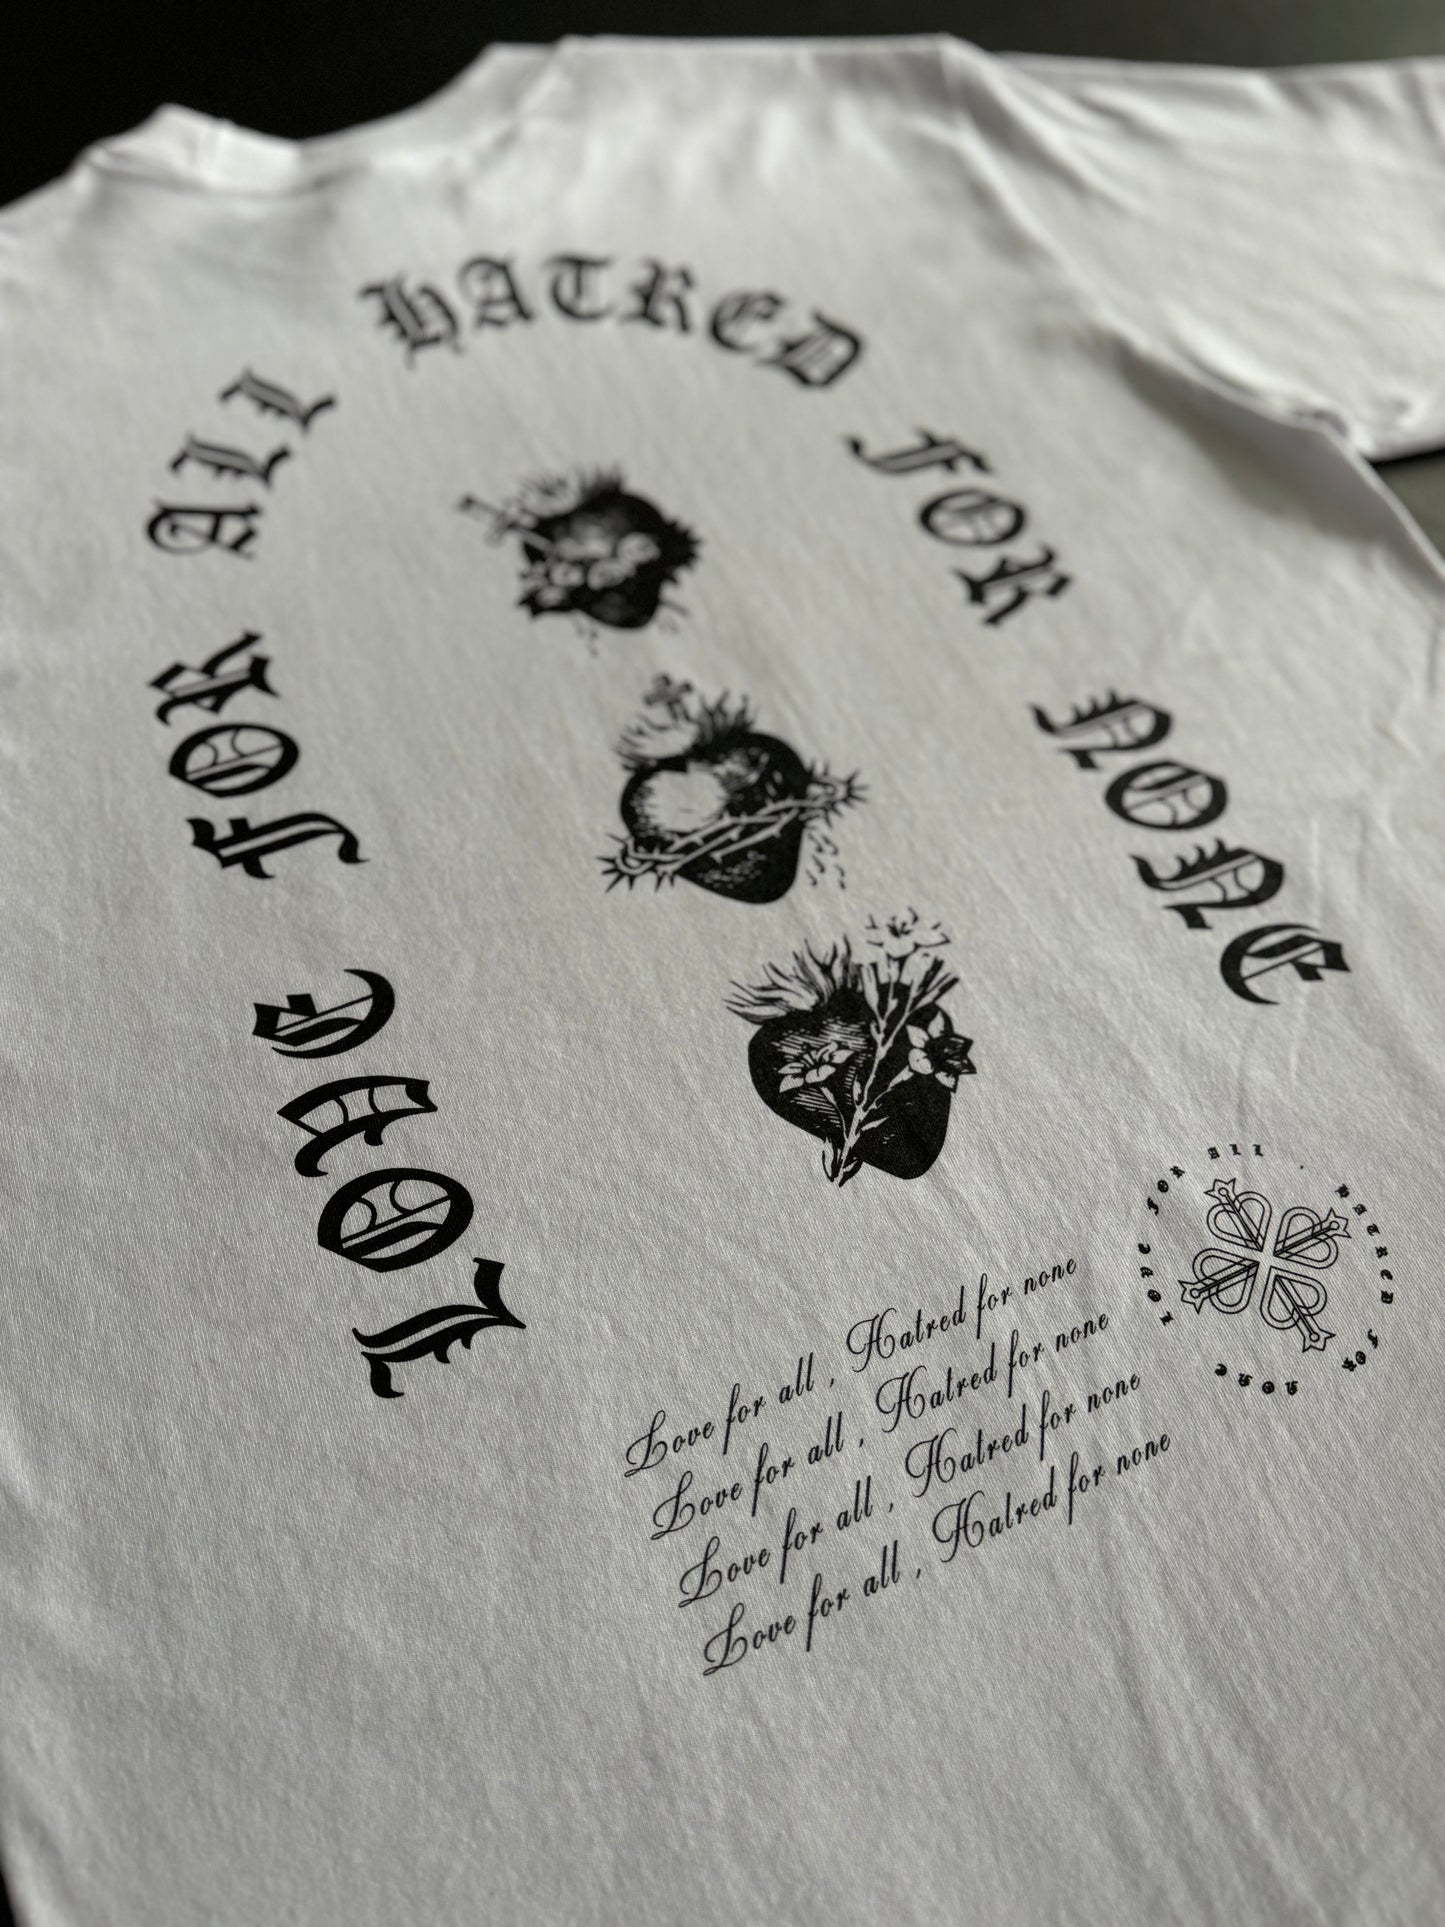 LOVE FOR ALL HATRED FOR NONE
LOVE FOR ALL . HATRED FOR NONE
Love for all , Hatred for none
Love for all , Hatred for none
Love for all , Hatred for none
Love for all , Hatred for none